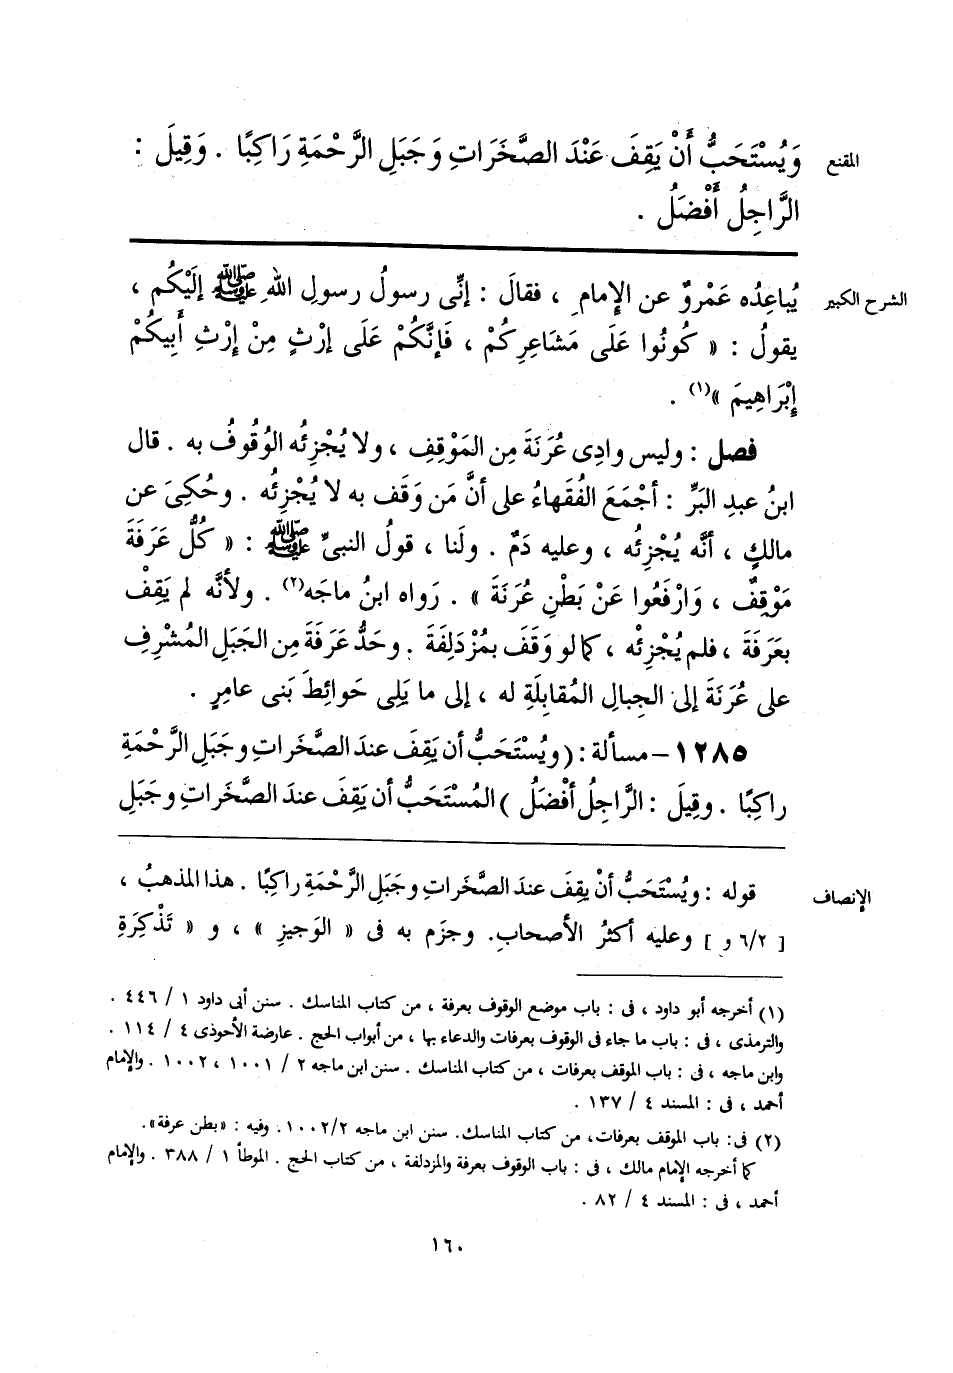 المقنع
وَيُسْتَحَبُّ أَنْ يَقِفَ عَنْدَ الصَّخَرَاتِ وَجَبَلِ الرَّحْمَةِ رَاكِبًا . وَقِيلَ :
الرَّاجِلُ أَفْضَلُ .
الشرح الكبير
يُباعِدُه عَمْروٌ عن الإِمامِ ، فقالَ : إنِّى رسولُ رسولِ اللهِ ﷺ إلَيْكُم ،
يقولُ : « كُونُوا عَلَى مَشَاعِرِكُمْ ، فَإنَّكُمْ عَلَى إرْثٍ مِنْ إِرْثِ أَبِيكُمْ
إِبْرَاهِيمَ »(١) .
فصل : وليس وادِى عُرَنَةَ مِن المَوْقِفِ ، ولا يُجْزِئُه الوُقُوفُ به . قال
ابنُ عبدِ البَرِّ : أجْمَعَ الفُقَهاءُ على أنَّ مَن وَقَف به لا يُجْزِئُه . وحُكِىَ عن
مالكٍ ، أنَّه يُجْزِئُه ، وعليه دَمٌ . ولَنا ، قولُ النبىِّ ﷺ : « كُلُّ عَرَفَةَ
مَوْقِفٌ ، وَارْفَعُوا عَنْ بَطْنِ عُرَنَةَ » . رَواه ابنُ ماجَه(٢) . ولأنَّه لم يَقِفْ
بعَرَفَةَ ، فلم يُجْزِئْه ، كما لو وَقَفَ بمُزْدَلِفَةَ . وحَدُّ عَرَفَةَ مِن الجَبَلِ المُشْرِفِ
على عُرَنَةَ إلى الجِبالِ المُقابِلَةِ له ، إلى ما يَلِى حَوائِطَ بَنى عامِرٍ .
١٢٨٥ – مسألة : ( ويُسْتَحَبُّ أن يَقِفَ عندَ الصَّخَراتِ وجَبَلِ الرَّحْمَةِ
راكِبًا . وقِيلَ : الرَّاجِلُ أفْضَلُ ) المُسْتَحَبُّ أن يَقِفَ عندَ الصَّخَراتِ وجَبَلِ
الإنصاف
قوله : ويُسْتَحَبُّ أنْ يقِفَ عندَ الصَّخَراتِ وجَبَلِ الرَّحْمَةِ راكِبًا . هذا المذهبُ ،
[ ٦/٢ و ] وعليه أكثرُ الأصحابِ. وجزَم به فى « الوَجيزِ » ، و « تَذْكِرَةِ
(١) أخرجه أبو داود ، فى : باب موضع الوقوف بعرفة ، من كتاب المناسك . سنن أبى داود ١ / ٤٤٦ .
والترمذى ، فى : باب ما جاء فى الوقوف بعرفات والدعاء بها ، من أبواب الحج . عارضة الأحوذى ٤ / ١١٤ .
وابن ماجه ، فى : باب الموقف بعرفات ، من كتاب المناسك . سنن ابن ماجه ٢ / ١٠٠١ ، ١٠٠٢ . والإمام
أحمد ، فى : المسند ٤ / ١٣٧ .
(٢) فى: باب الموقف بعرفات، من كتاب المناسك. سنن ابن ماجه ١٠٠٢/٢. وفيه : «بطن عرفة».
كما أخرجه الإمام مالك ، فى : باب الوقوف بعرفة والمزدلفة ، من كتاب الحج . الموطأ ١ / ٣٨٨ . والإمام
أحمد ، فى : المسند ٤ / ٨٢ .
١٦٠